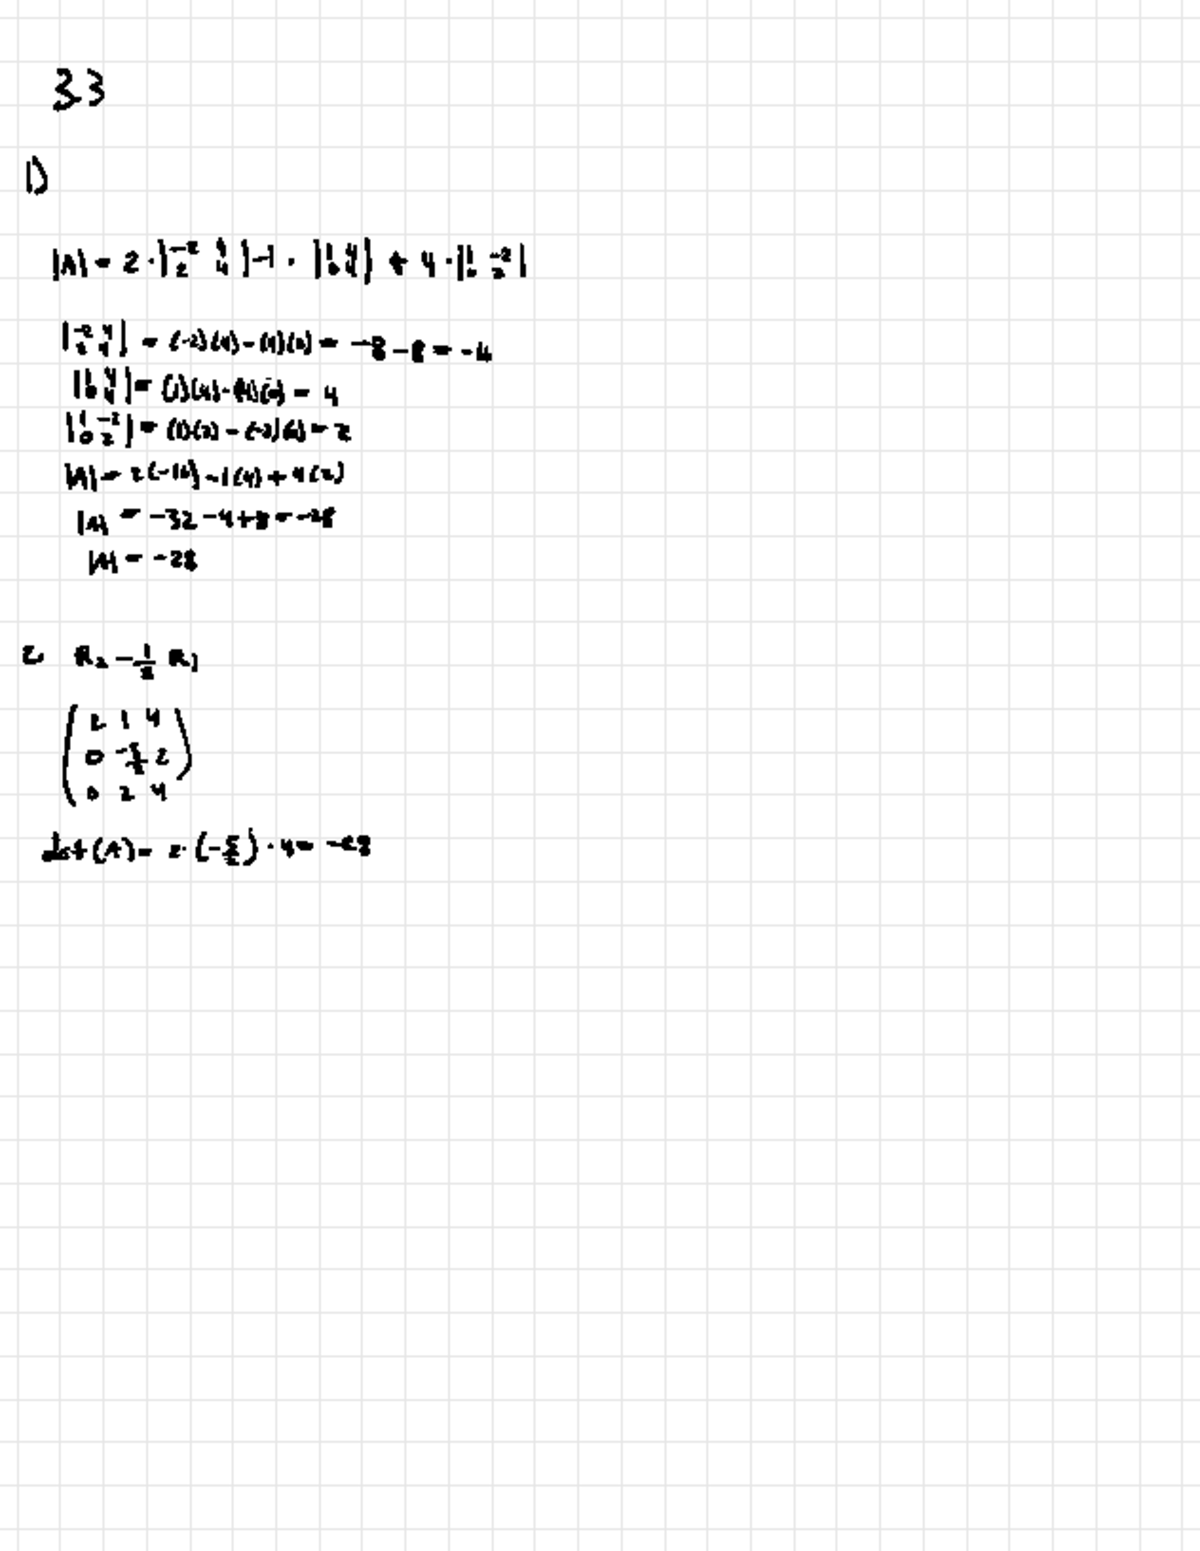 3.3
1)
|A| = 2 · |-2 4 2 4| - 1 · |1 4 0 4| + 4 · |1 -2 0 2|
|-2 4 2 4| = (-2)(4) - (4)(2) = -8 - 8 = -16
|1 4 0 4| = (1)(4) - (4)(0) = 4
|1 -2 0 2| = (1)(2) - (-2)(0) = 2
|A| = 2(-16) - 1(4) + 4(2)
|A| = -32 - 4 + 8 = -28
|A| = -28
2 R₂ - 1/2 R₁
2 1 4
0 -5/2 2
0 2 4
det(A) = 2 · (-5/2) · 4 = -28